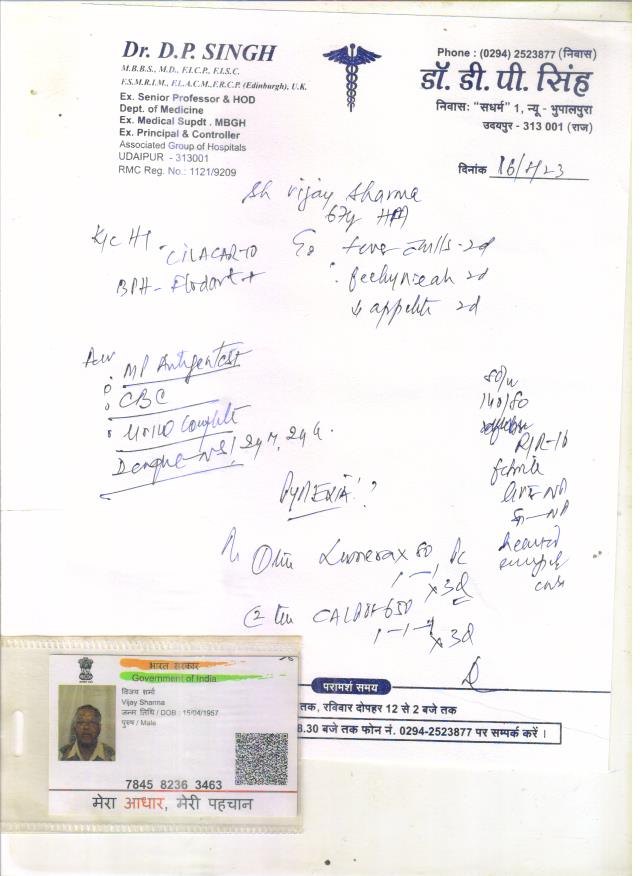 Dr. D.P. SINGH
M.B.B.S., M.D., F.I.C.P., F.I.S.C.
F.S.M.R.I.M., F.I.A.C.M.,F.R.C.P. (Edinburgh), U.K.
Ex. Senior Professor & HOD
Dept. of Medicine
Ex. Medical Supdt . MBGH
Ex. Principal & Controller
Associated Group of Hospitals
UDAIPUR - 313001
RMC Reg. No.: 1121/9209
Phone : (0294) 2523877 (निवास)
डॉ. डी. पी. सिंह
निवास: "सधर्म" 1, न्यू - भुपालपुरा
उदयपुर - 313 001 (राज)
दिनांक
Sh Vijay Sharma
67y
K/C HT - CILACAR-10
BPH -
fever chills - 2d
2d
↓ appetite 2d
MP Antigen test
CBC
Urine Complete
Dengue NS1, IgM, IgG.
80/m
140/80
R/R-16
PYREXIA ?
Lumerax 80
x 3d
CALPOL 650
1-1-1
x 3d
परामर्श समय
तक, रविवार दोपहर 12 से 2 बजे तक
8.30 बजे तक फोन नं. 0294-2523877 पर सम्पर्क करें ।
भारत सरकार
Government of India
विजय शर्मा
Vijay Sharma
जन्म तिथि / DOB : 15/04/1957
पुरुष / Male
7845 8236 3463
मेरा आधार, मेरी पहचान